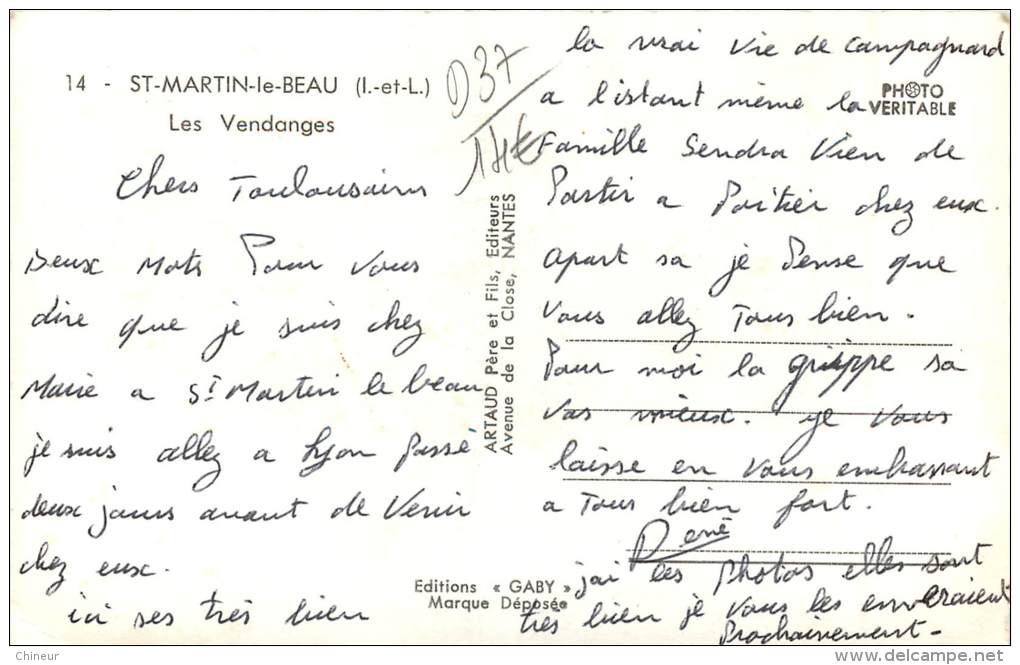 14 - ST-MARTIN-le-BEAU (I.-et-L.)
Les Vendanges
D37
1H€
Chers Toulousains
Deux mots Pour vous
dire que je suis chez
Marie a St Martin le beau
je suis allez a Lyon passé
deux jours avant de venir
chez eux.
ici ses très bien
la vrai vie de campagnard
a l'istant même la
Famille Sendra vien de
Partir a Poitier chez eux.
apart sa je Pense que
vous allez Tous bien.
Pour moi la grippe sa
vas mieux. je vous
laisse en vous embrassant
a Tous bien fort.
René
jai les photos elles sont
très bien je vous les enveraient
prochainement-
PHOTO
VERITABLE
ARTAUD Père et Fils, Editeurs
Avenue de la Close, NANTES
Editions « GABY »
Marque Déposée
Chineur
©delcampe.net